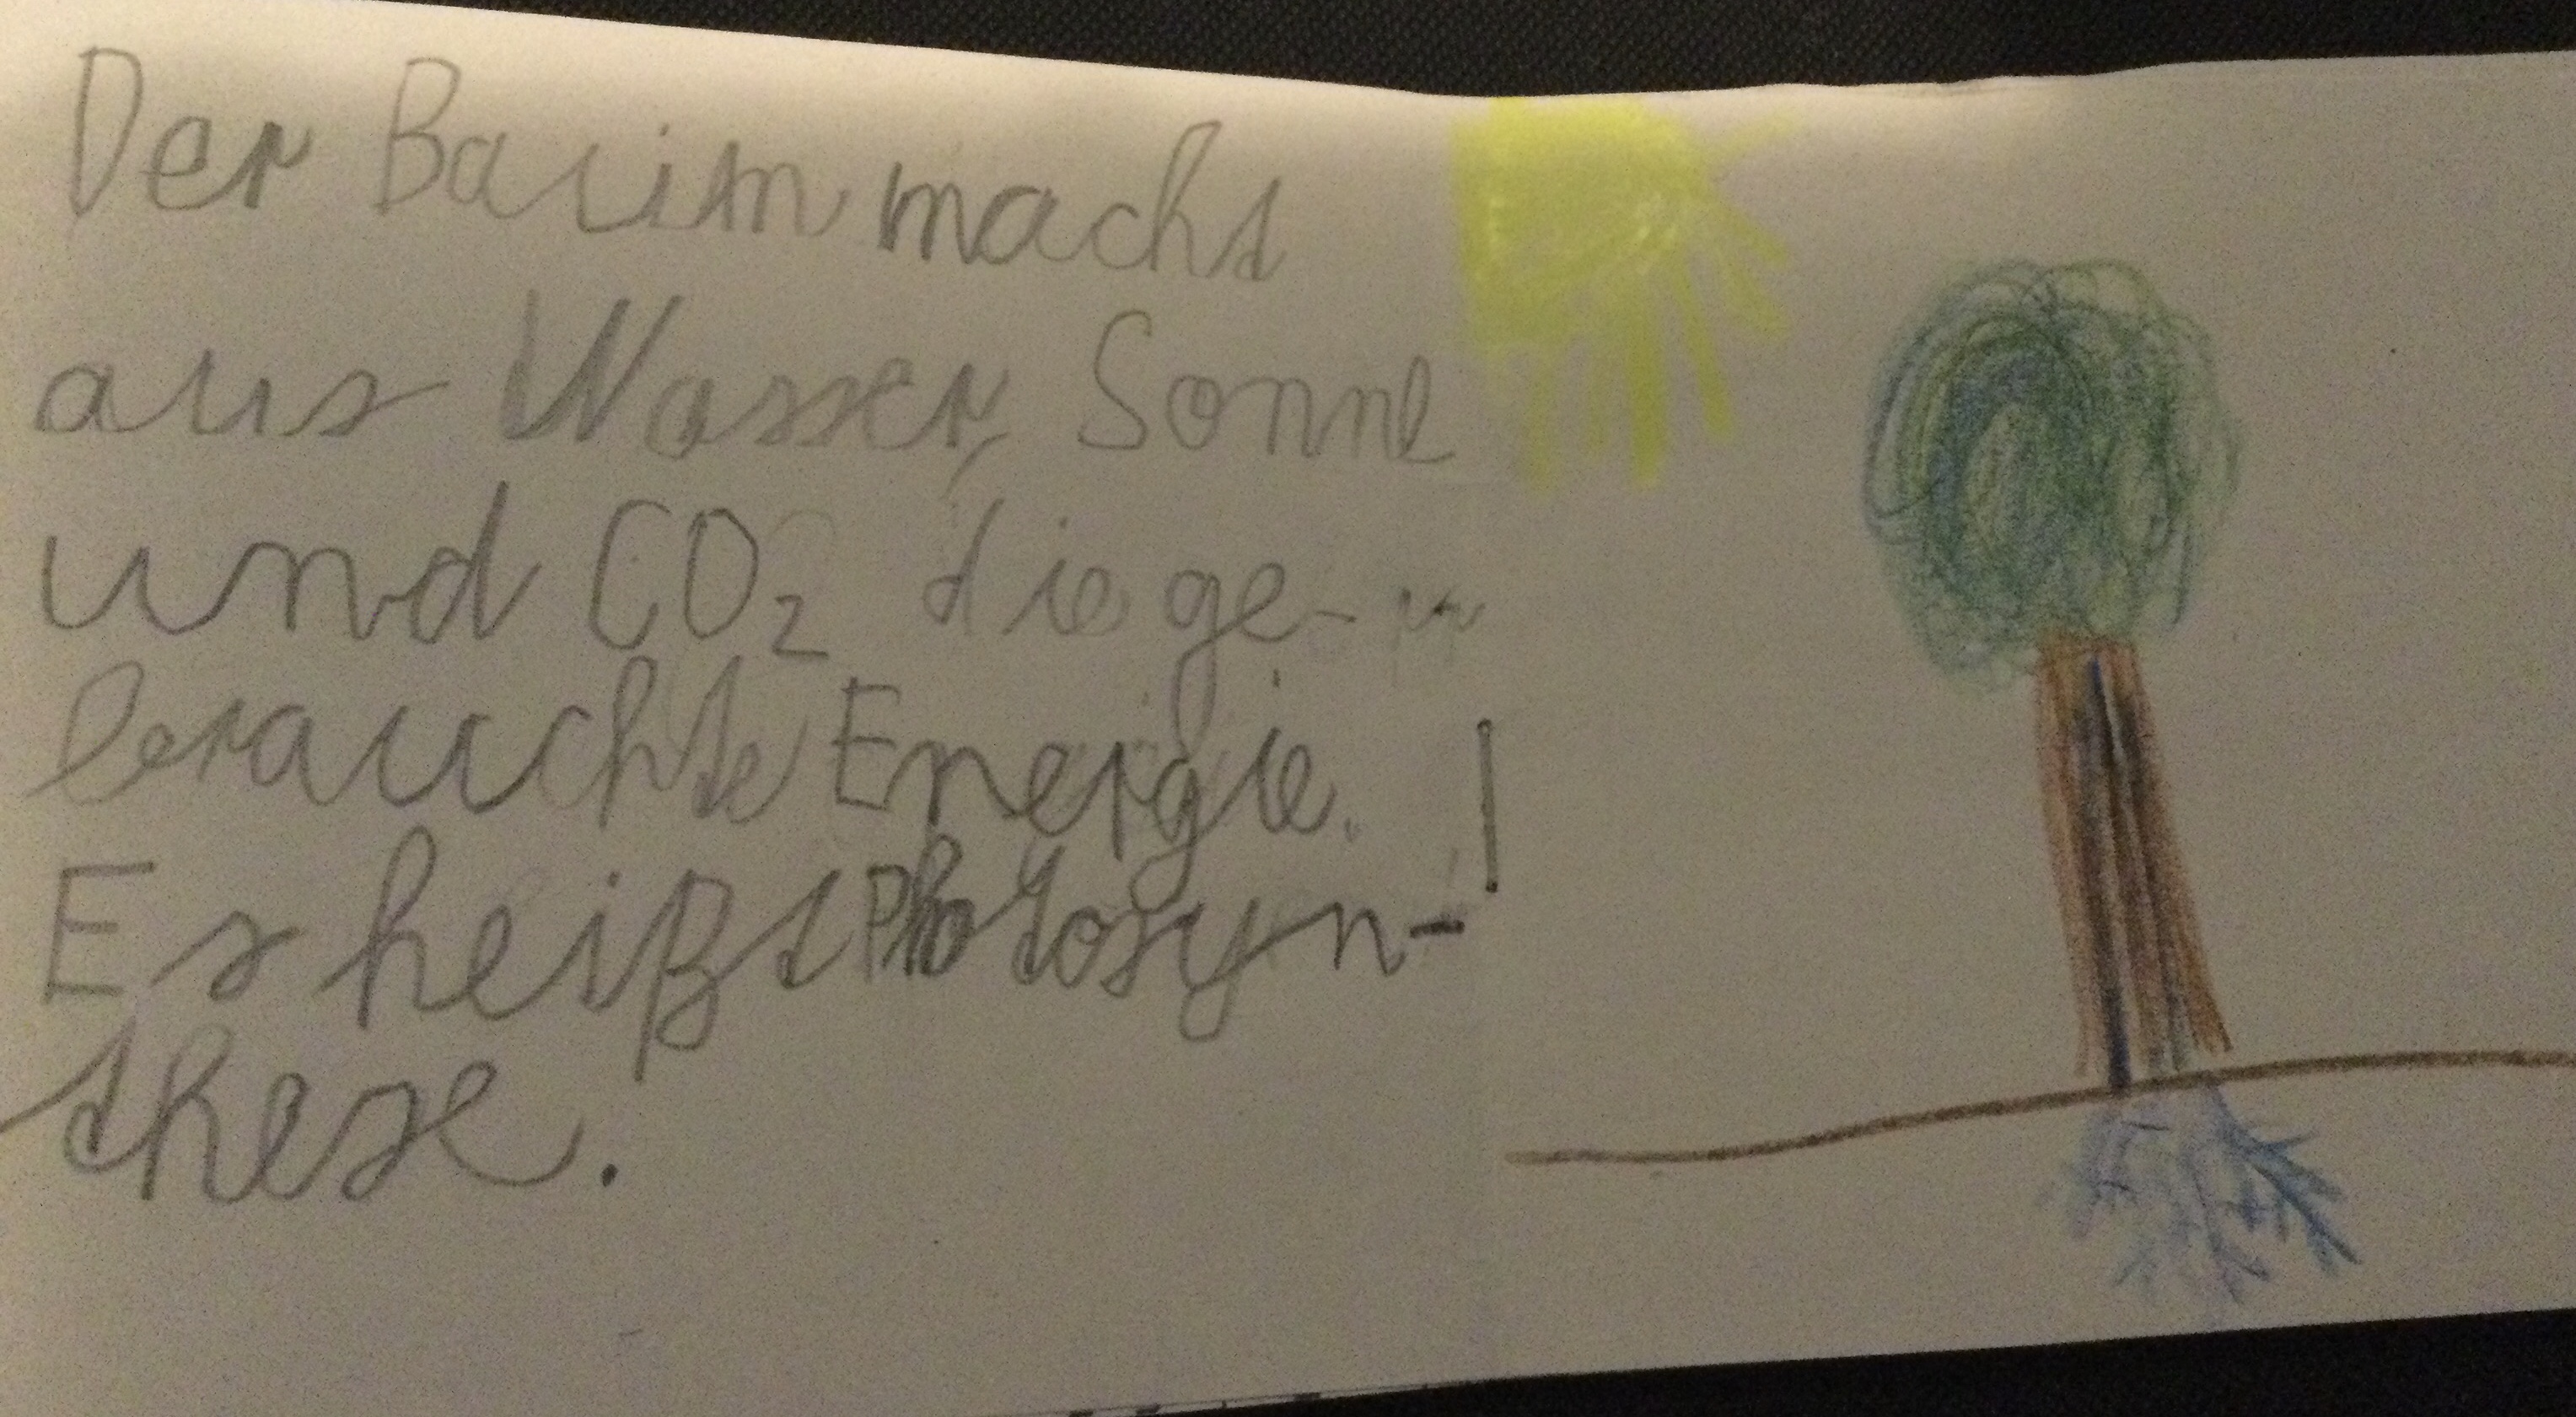 Der Baum macht
aus Wasser, Sonne
und CO₂ die ge-
brauchte Energie.
Es heißt Photosyn-
these.